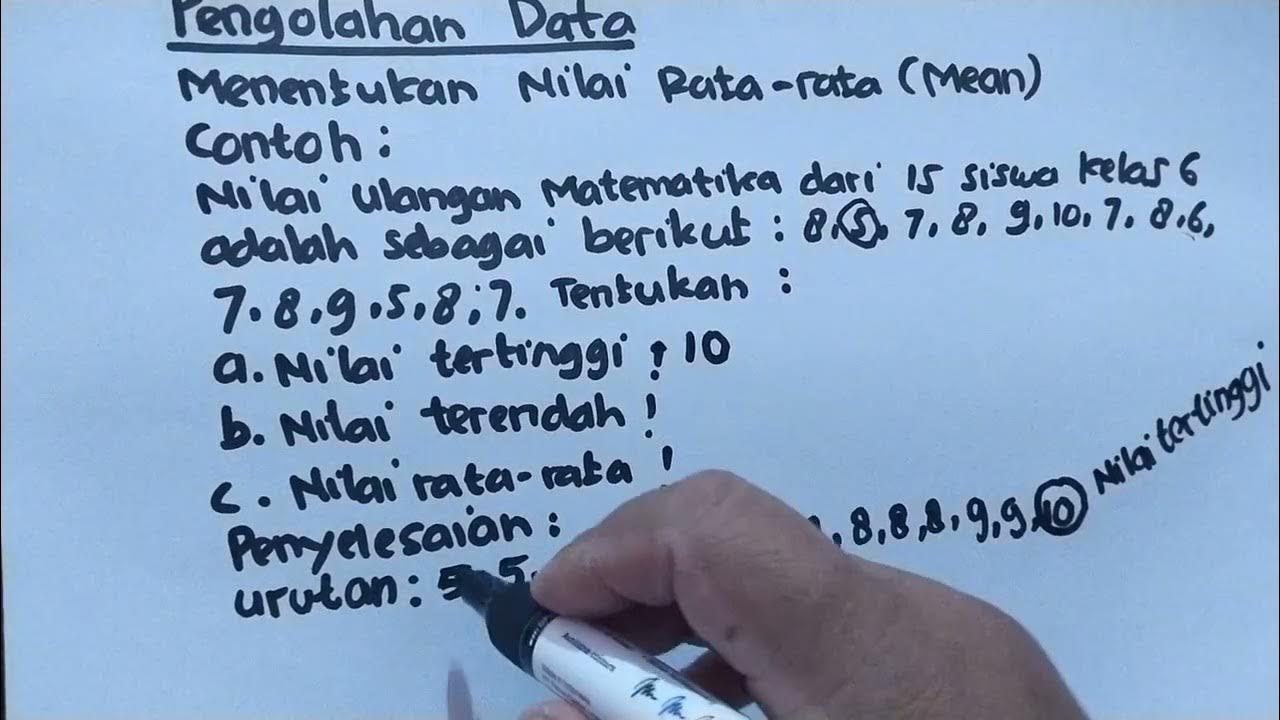 Pengolahan Data
Menentukan Nilai Rata-rata (Mean)
Contoh :
Nilai ulangan Matematika dari 15 siswa kelas 6
adalah sebagai berikut : 8, 5, 7, 8, 9, 10, 7, 8, 6,
7, 8, 9, 5, 8, 7. Tentukan :
a. Nilai tertinggi ! 10
b. Nilai terendah !
c. Nilai rata-rata !
Penyelesaian :
urutan : 5, 5, 8, 8, 8, 9, 9, 10 Nilai tertinggi